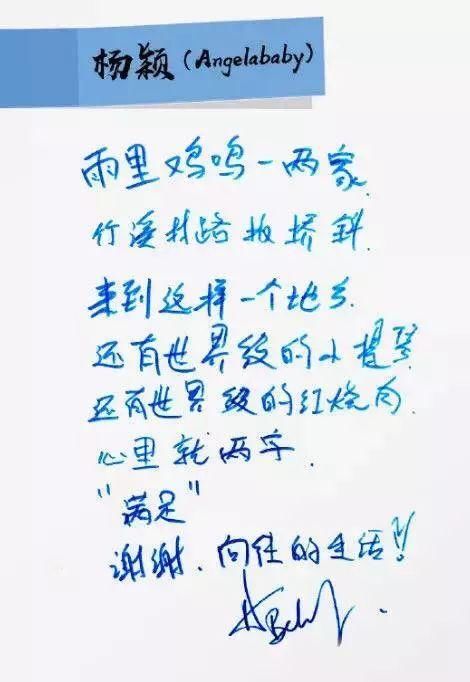 杨颖（Angelababy）
雨里鸡鸣一两家
竹溪村路板桥斜.
来到这样一个地方.
还有世界级的小提琴
还有世界级的红烧肉.
心里就两字.
"满足"
谢谢.向往的生活!!